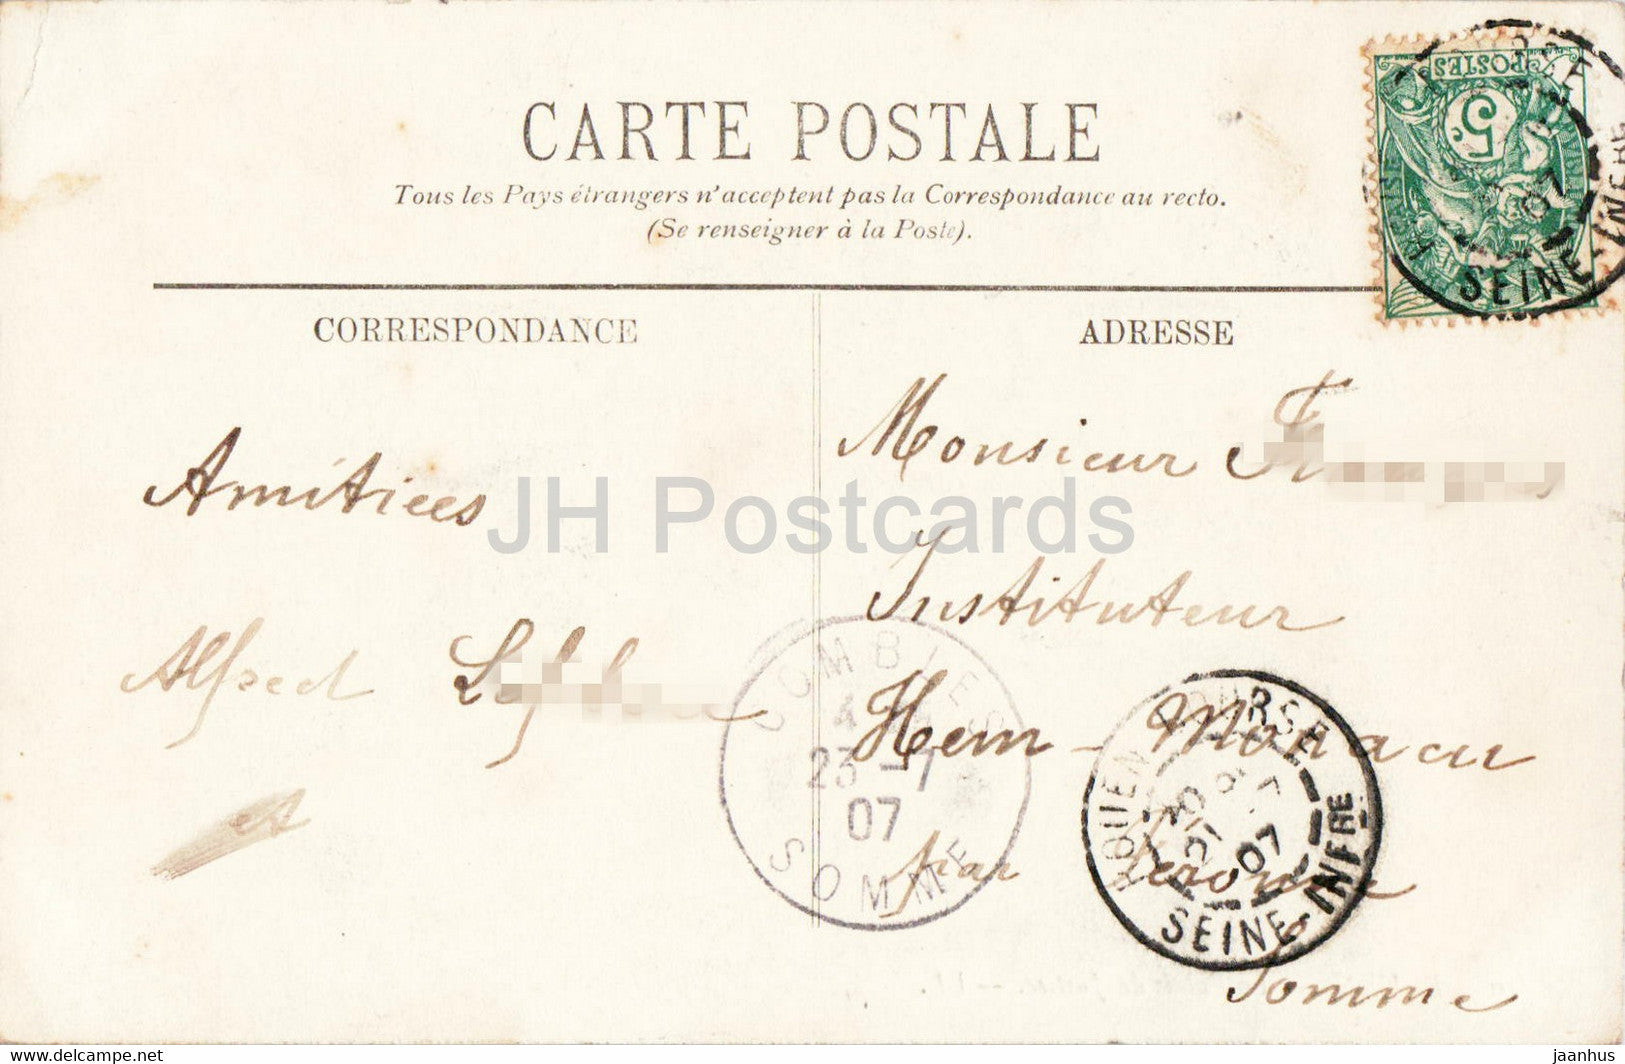 CARTE POSTALE
Tous les Pays étrangers n'acceptent pas la Correspondance au recto.
(Se renseigner à la Poste).
POSTES
5c
07
SEINE-INFRE
CORRESPONDANCE
ADRESSE
Amitiées
Alfred
et
Monsieur
Instituteur
Hem-Monacu
par Peronne
Somme
COMBLES
4
23-7
07
SOMME
ROUEN BOURSE
21
07
SEINE-INFRE
JH Postcards
www.jhpostcards.com
jaanhus